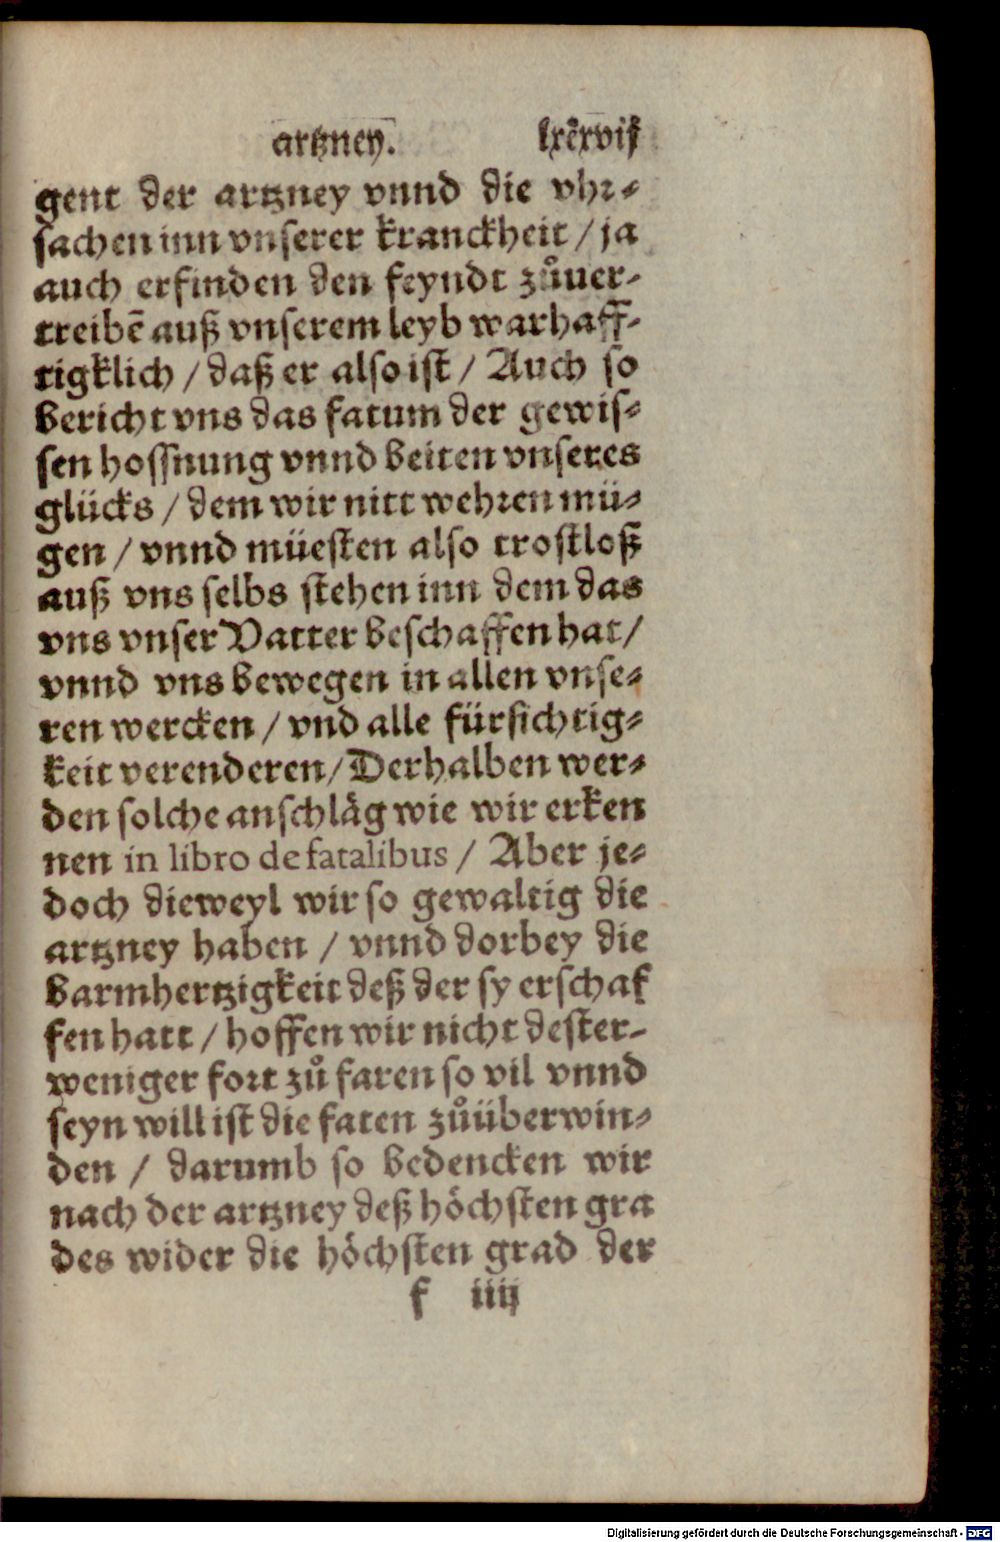 artzney.
gent der artzney vnnd die vhr⸗
sachen inn vnserer kranckheit / ja
auch erfinden den feyndt zůuer⸗
treibẽ auß vnserem leyb warhaff⸗
tigklich / daß er also ist / Auch so
bericht vns das fatum der gewis⸗
sen hoffnung vnnd beiten vnseres
glücks / dem wir nitt wehren mü⸗
gen / vnnd müesten also trostloß
auß vns selbs stehen inn dem das
vns vnser Vatter beschaffen hat /
vnnd vns bewegen in allen vnse⸗
ren wercken / vnd alle fürsichtig⸗
keit verenderen / Derhalben wer⸗
den solche anschläg wie wir erken
nen in libro de fatalibus / Aber je⸗
doch dieweyl wir so gewaltig die
artzney haben / vnnd dorbey die
barmhertzigkeit deß der sy erschaf
fen hatt / hoffen wir nicht dester⸗
weniger fort zů faren so vil vnnd
seyn will ist die faten zůüberwin⸗
den / darumb so bedencken wir
nach der artzney deß höchsten gra
des wider die höchsten grad der
f iiij
Digitalisierung gefördert durch die Deutsche Forschungsgemeinschaft - DFG